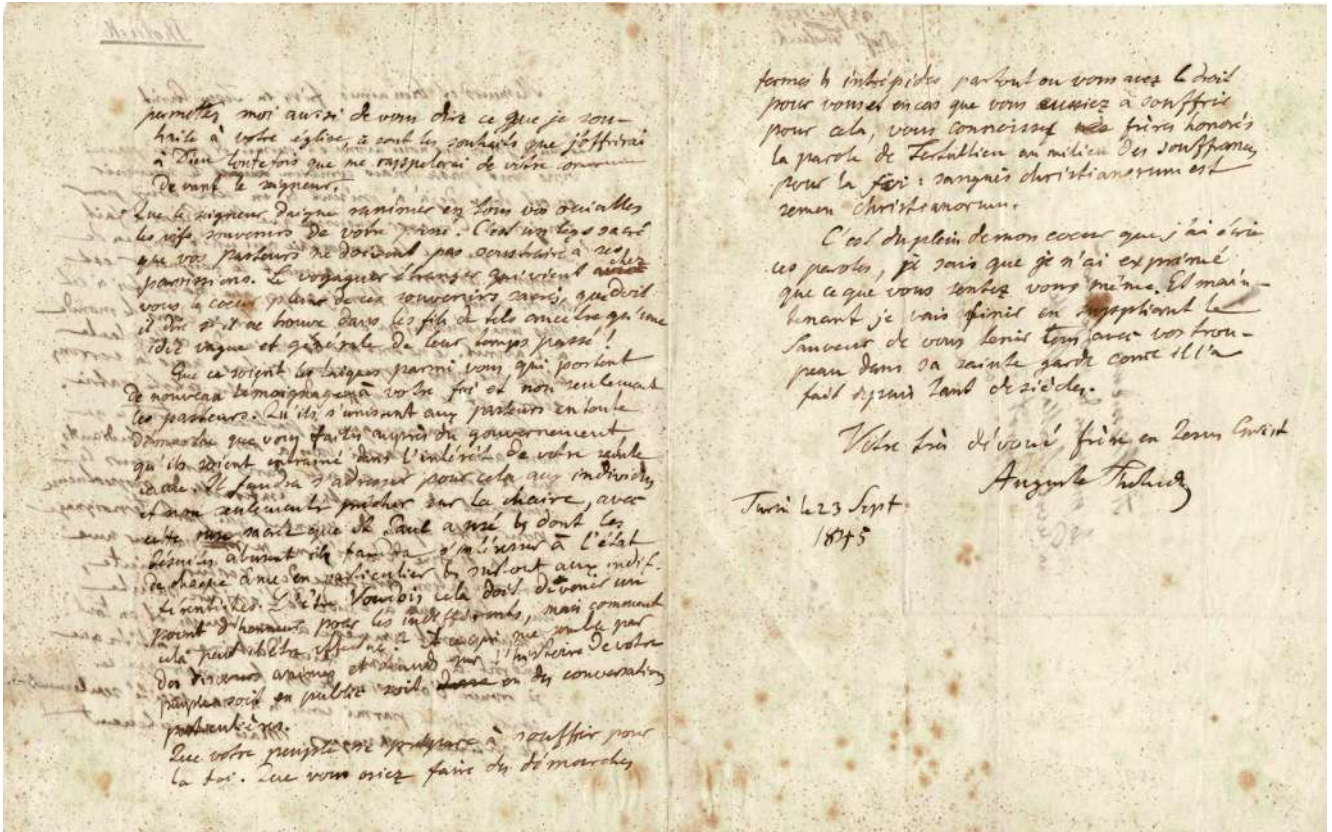 permettez moi aussi de vous dire ce que je sou-
haite à votre église, ce sont les souhaits que j'offrirai
à Dieu toutefois que me rappelerai de votre
devant le seigneur.
Que le seigneur daigne ranimer en tous vos ouailles
les vifs souvenirs de votre passé. C'est un legs sacré
que vos pasteurs ne doivent pas soustraire à ses
paroissiens. Le voyageur étranger qui vient chez
vous le coeur plein de ces souvenirs sacrés, que doit
il dire s'il ne trouve dans les fils de tels ancêtres qu'une
idée vague et générale de leur temps passé!
Que ce soient les laiques parmi vous qui portent
de nouveau temoignage à votre foi et non seulement
les pasteurs. Qu'ils s'unissent aux pasteurs en toute
démarche que vous faites auprès du gouvernement
qu'ils soient entrainé dans l'intérêt de votre
cause. Il faudra s'adresser pour cela aux individus
et non seulement prêcher sur la chaire, avec
cette ruse sacrée que St Paul a usé et dont les
Jésuites abusent il faudra s'intéresser à l'état
de chaque âme en particulier et surtout aux indif-
ferentistes. L'être Vaudois cela doit devenir un
point d'honneur pour les indifférents, mais comment
cela peut être effectué? A ce qui me semble par
des discours animés et chauds sur l'histoire de votre
peuple soit en public soit en des conversations
particulières.
Que votre peuple se prépare à souffrir pour
la foi. Que vous osiez faire des démarches
fermes et intrépides partout ou vous avez le droit
pour vous et en cas que vous eussiez à souffrir
pour cela, vous connoissez frères honorés
la parole de Tertullien au milieu des souffrances
pour la foi: sanguis christianorum est
semen christianorum.
C'est du plein de mon coeur que j'ai écrit
ces paroles, je sais que je n'ai exprimé
que ce que vous sentez vous même. Et main-
tenant je vais finir en suppliant le
Sauveur de vous tenir tous avec vos trou-
peau dans sa sainte garde come il l'a
fait depuis tant de siècles.
Votre très dévoué frère en Jesus Christ
Auguste Tholuck
Turin le 23 Sept
1845